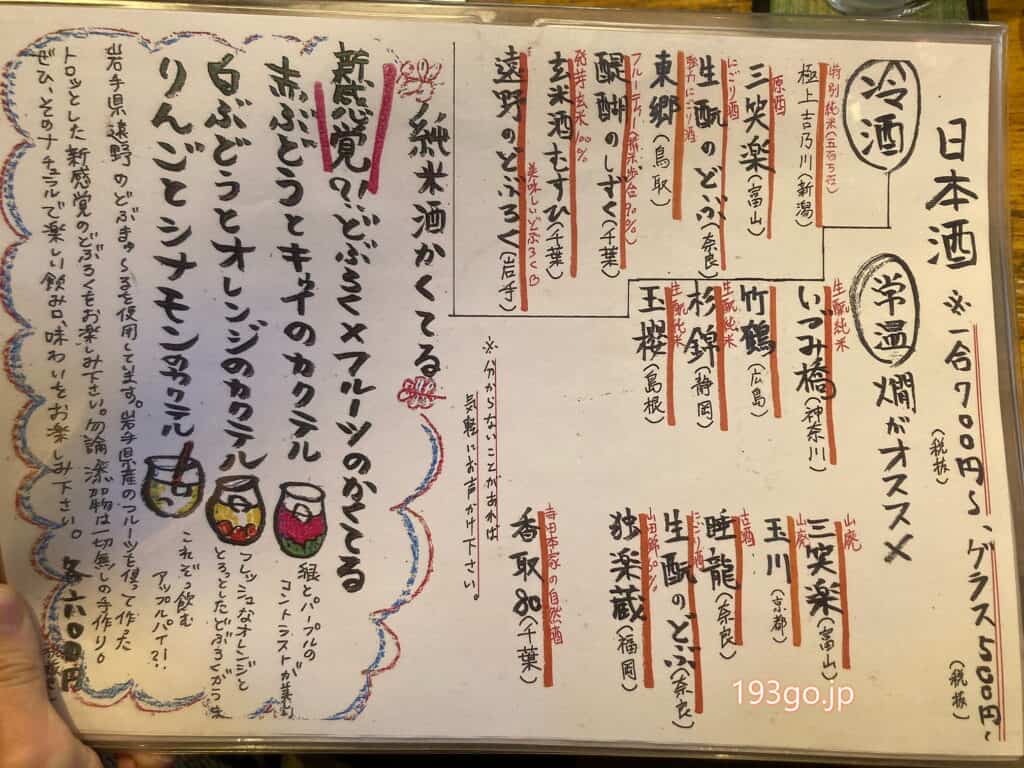 日本酒 ※一合700円〜、グラス500円〜
(税抜)
(税抜)
冷酒
特別純米(五百万石)
極上吉乃川(新潟)
原酒
三笑楽(富山)
にごり酒
生酛のどぶ(奈良)
強力にごり酒
東郷(鳥取)
フルーティー(精米歩合90%)
醍醐のしずく(千葉)
発芽玄米100%
玄米酒むすひ(千葉)
美味しいどぶろく
遠野のどぶろく(岩手)
常温 燗がオススメ
生酛純米
いづみ橋(神奈川)
竹鶴(広島)
生酛純米
杉錦(静岡)
生酛純米
玉櫻(島根)
山廃
三笑楽(富山)
山廃
玉川(京都)
古酒
睡龍(奈良)
にごり酒
生酛のどぶ(奈良)
山田錦
独楽蔵(福岡)
寺田本家の自然酒
香取80(千葉)
※分からないことがあれば
気軽にお声がけ下さい。
純米酒かくてる
新感覚?!どぶろく×フルーツのかくてる
赤ぶどうとキウイのカクテル
緑とパープルの
コントラストが美
白ぶどうとオレンジのカクテル
フレッシュなオレンジと
とろっとしたどぶろくがうま
りんごとシナモンのカクテル
これぞっ飲む
アップルパイ?!
岩手県遠野のどぶまゅ〜るを使用しています。岩手県産のフルーツを使って作った
トロッとした新感覚のどぶろくもお楽しみ下さい。勿論添加物は一切無しの手作り。
ぜひ、そのナチュラルで楽しい飲み口、味わいをお楽しみ下さい。 各六00円
193go.jp